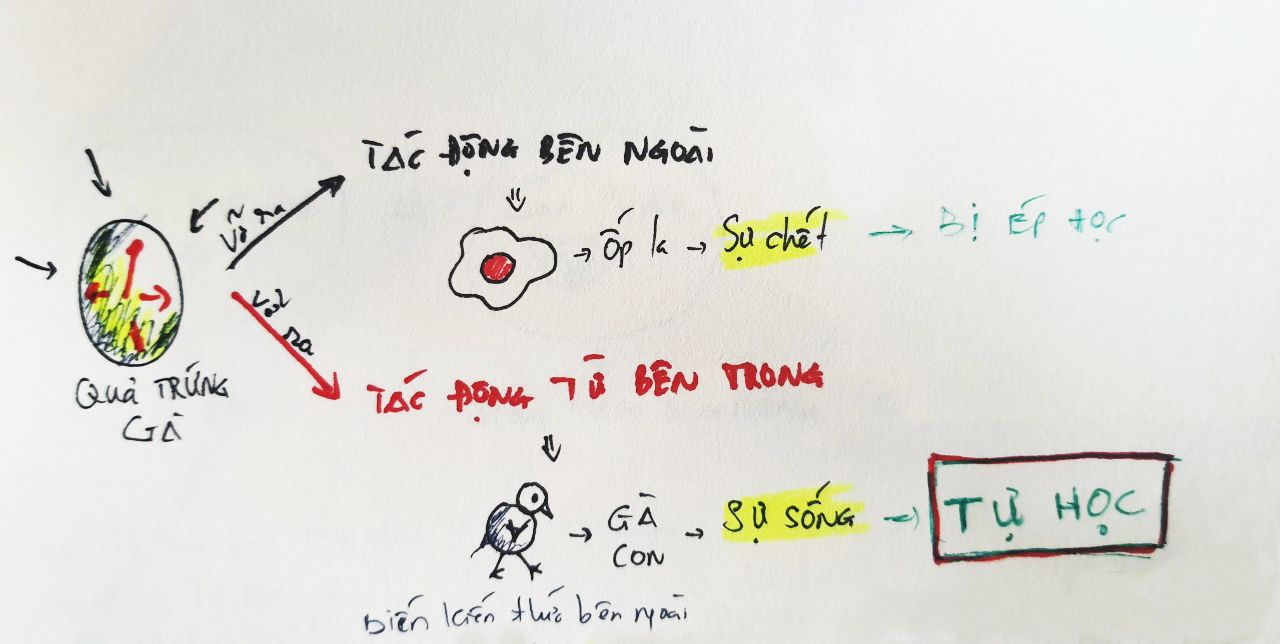 TÁC ĐỘNG BÊN NGOÀI
Vỡ ra
ỐP la
Sự chết
BỊ ÉP HỌC
QUẢ TRỨNG
GÀ
ra
TÁC ĐỘNG TỪ BÊN TRONG
GÀ
CON
SỰ SỐNG
TỰ HỌC
Biến kiến thức bên ngoài